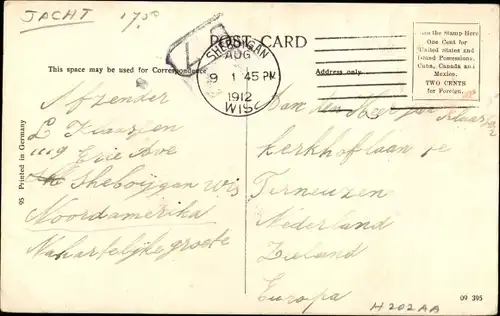 JACHT 17.50
POST CARD
This space may be used for Correspondence
Address only
Stamp Here
One Cent for
United States and
Island Possessions,
Cuba, Canada and
Mexico.
TWO CENTS
for Foreign.
SHEBOYGAN
AUG
9
1 45 PM
1912
WIS.
Afzender
L
1119 Erie Ave
Sheboijgan Wis
Noordamerika
groete
Aan den Heer
Kerkhoflaan
Terneuzen
Nederland
Zieland
Europa
95 Printed in Germany
09 395
H202AA